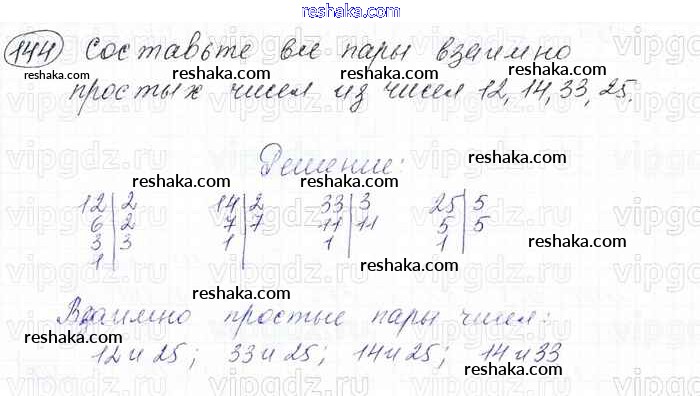 reshaka.com
144 Составьте все пары взаимно
reshaka.com reshaka.com reshaka.com
простых чисел из чисел 12, 14, 33, 25.
reshaka.com
vipgdz.ru
Решение:
reshaka.com reshaka.com reshaka.com
12 | 2 14 | 2 33 | 3 25 | 5
6 | 2 7 | 7 11 | 11 5 | 5
3 | 3 1 | 1 | 1 |
1 |
reshaka.com reshaka.com
Взаимно простые пары чисел:
reshaka.com reshaka.com reshaka.com
12 и 25; 33 и 25; 14 и 25; 14 и 33
reshaka.com